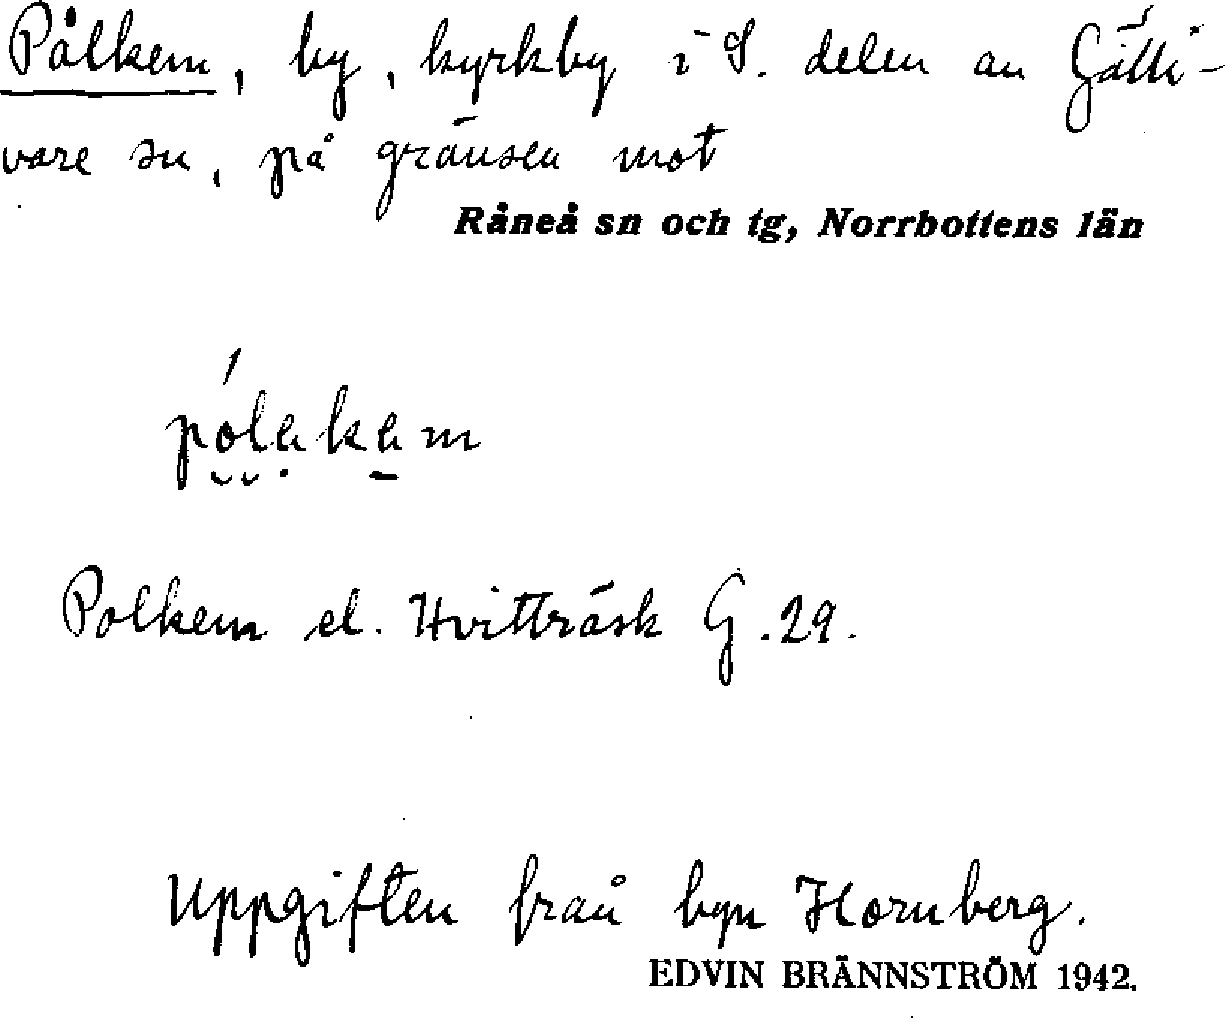 Pålkem, by, kyrkby i S. delen av Gälli-
vare sn, på gränsen mot
Råneå sn och tg, Norrbottens län
Polkem el. Hvitträsk G. 29.
Uppgiften från byn Hornberg.
EDVIN BRÄNNSTRÖM 1942.